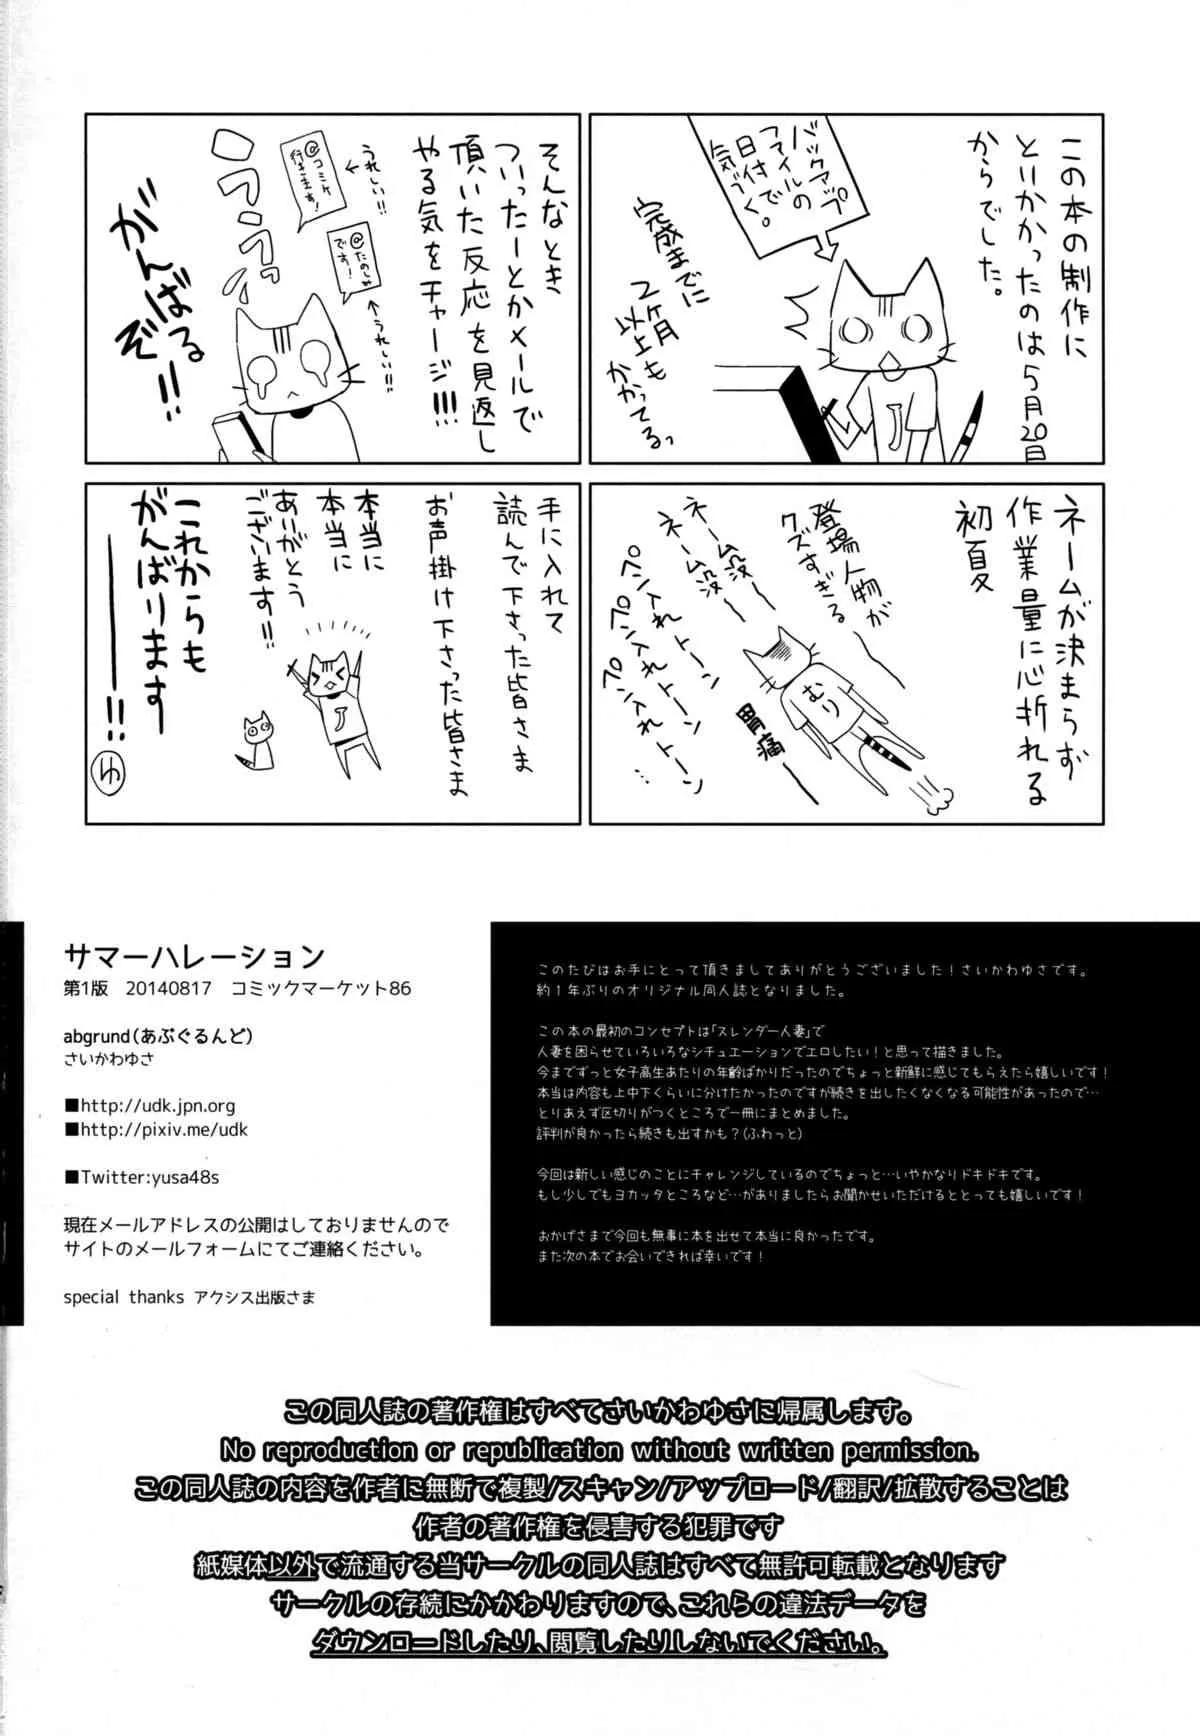 この本の制作に
とりかかったのは5月20日
からでした。
バックアップ
ファイルの
日付で
気づく。
完成までに
2ヶ月
以上も
かかってるっ
そんなとき
ついったーとかメールで
頂いた反応を見返し
やる気をチャージ!!!
うれしい!!
@コミケ
行きます!
@たのしみ
です!
うれしい!!
がんばる
ぞ!!
ネームが決まらず
作業量に心折れる
初夏
登場人物が
クズすぎる
ネーム没ー
ネーム没ー
ペン入れトーン
ペン入れトーン
ペン入れトーン
むり
胃痛ー
手に入れて
読んで下さった皆さま
お声掛け下さった皆さま
本当に
本当に
ありがとう
ございます!!
J
これからも
がんばります
ー!!
ゆ
サマーハレーション
第1版 20140817 コミックマーケット86
abgrund(あぶぐるんど)
さいかわゆさ
■http://udk.jpn.org
■http://pixiv.me/udk
■Twitter:yusa48s
現在メールアドレスの公開はしておりませんので
サイトのメールフォームにてご連絡ください。
special thanks アクシス出版さま
このたびはお手にとって頂きましてありがとうございました!さいかわゆさです。
約1年ぶりのオリジナル同人誌となりました。
この本の最初のコンセプトは「スレンダー人妻」で
人妻を困らせていろいろなシチュエーションでエロしたい!と思って描きました。
今までずっと女子高生あたりの年齢ばかりだったのでちょっと新鮮に感じてもらえたら嬉しいです!
本当は内容も上中下くらいに分けたかったのですが続きを出したくなくなる可能性があったので…
とりあえず区切りがつくところで一冊にまとめました。
評判が良かったら続きも出すかも?(ふわっと)
今回は新しい感じのことにチャレンジしているのでちょっと…いやかなりドキドキです。
もし少しでもヨカッタところなど…がありましたらお聞かせいただけるととっても嬉しいです!
おかげさまで今回も無事に本を出せて本当に良かったです。
また次の本でお会いできれば幸いです!
この同人誌の著作権はすべてさいかわゆさに帰属します。
No reproduction or republication without written permission.
この同人誌の内容を作者に無断で複製/スキャン/アップロード/翻訳/拡散することは
作者の著作権を侵害する犯罪です
紙媒体以外で流通する当サークルの同人誌はすべて無許可転載となります
サークルの存続にかかわりますので、これらの違法データを
ダウンロードしたり、閲覧したりしないでください。